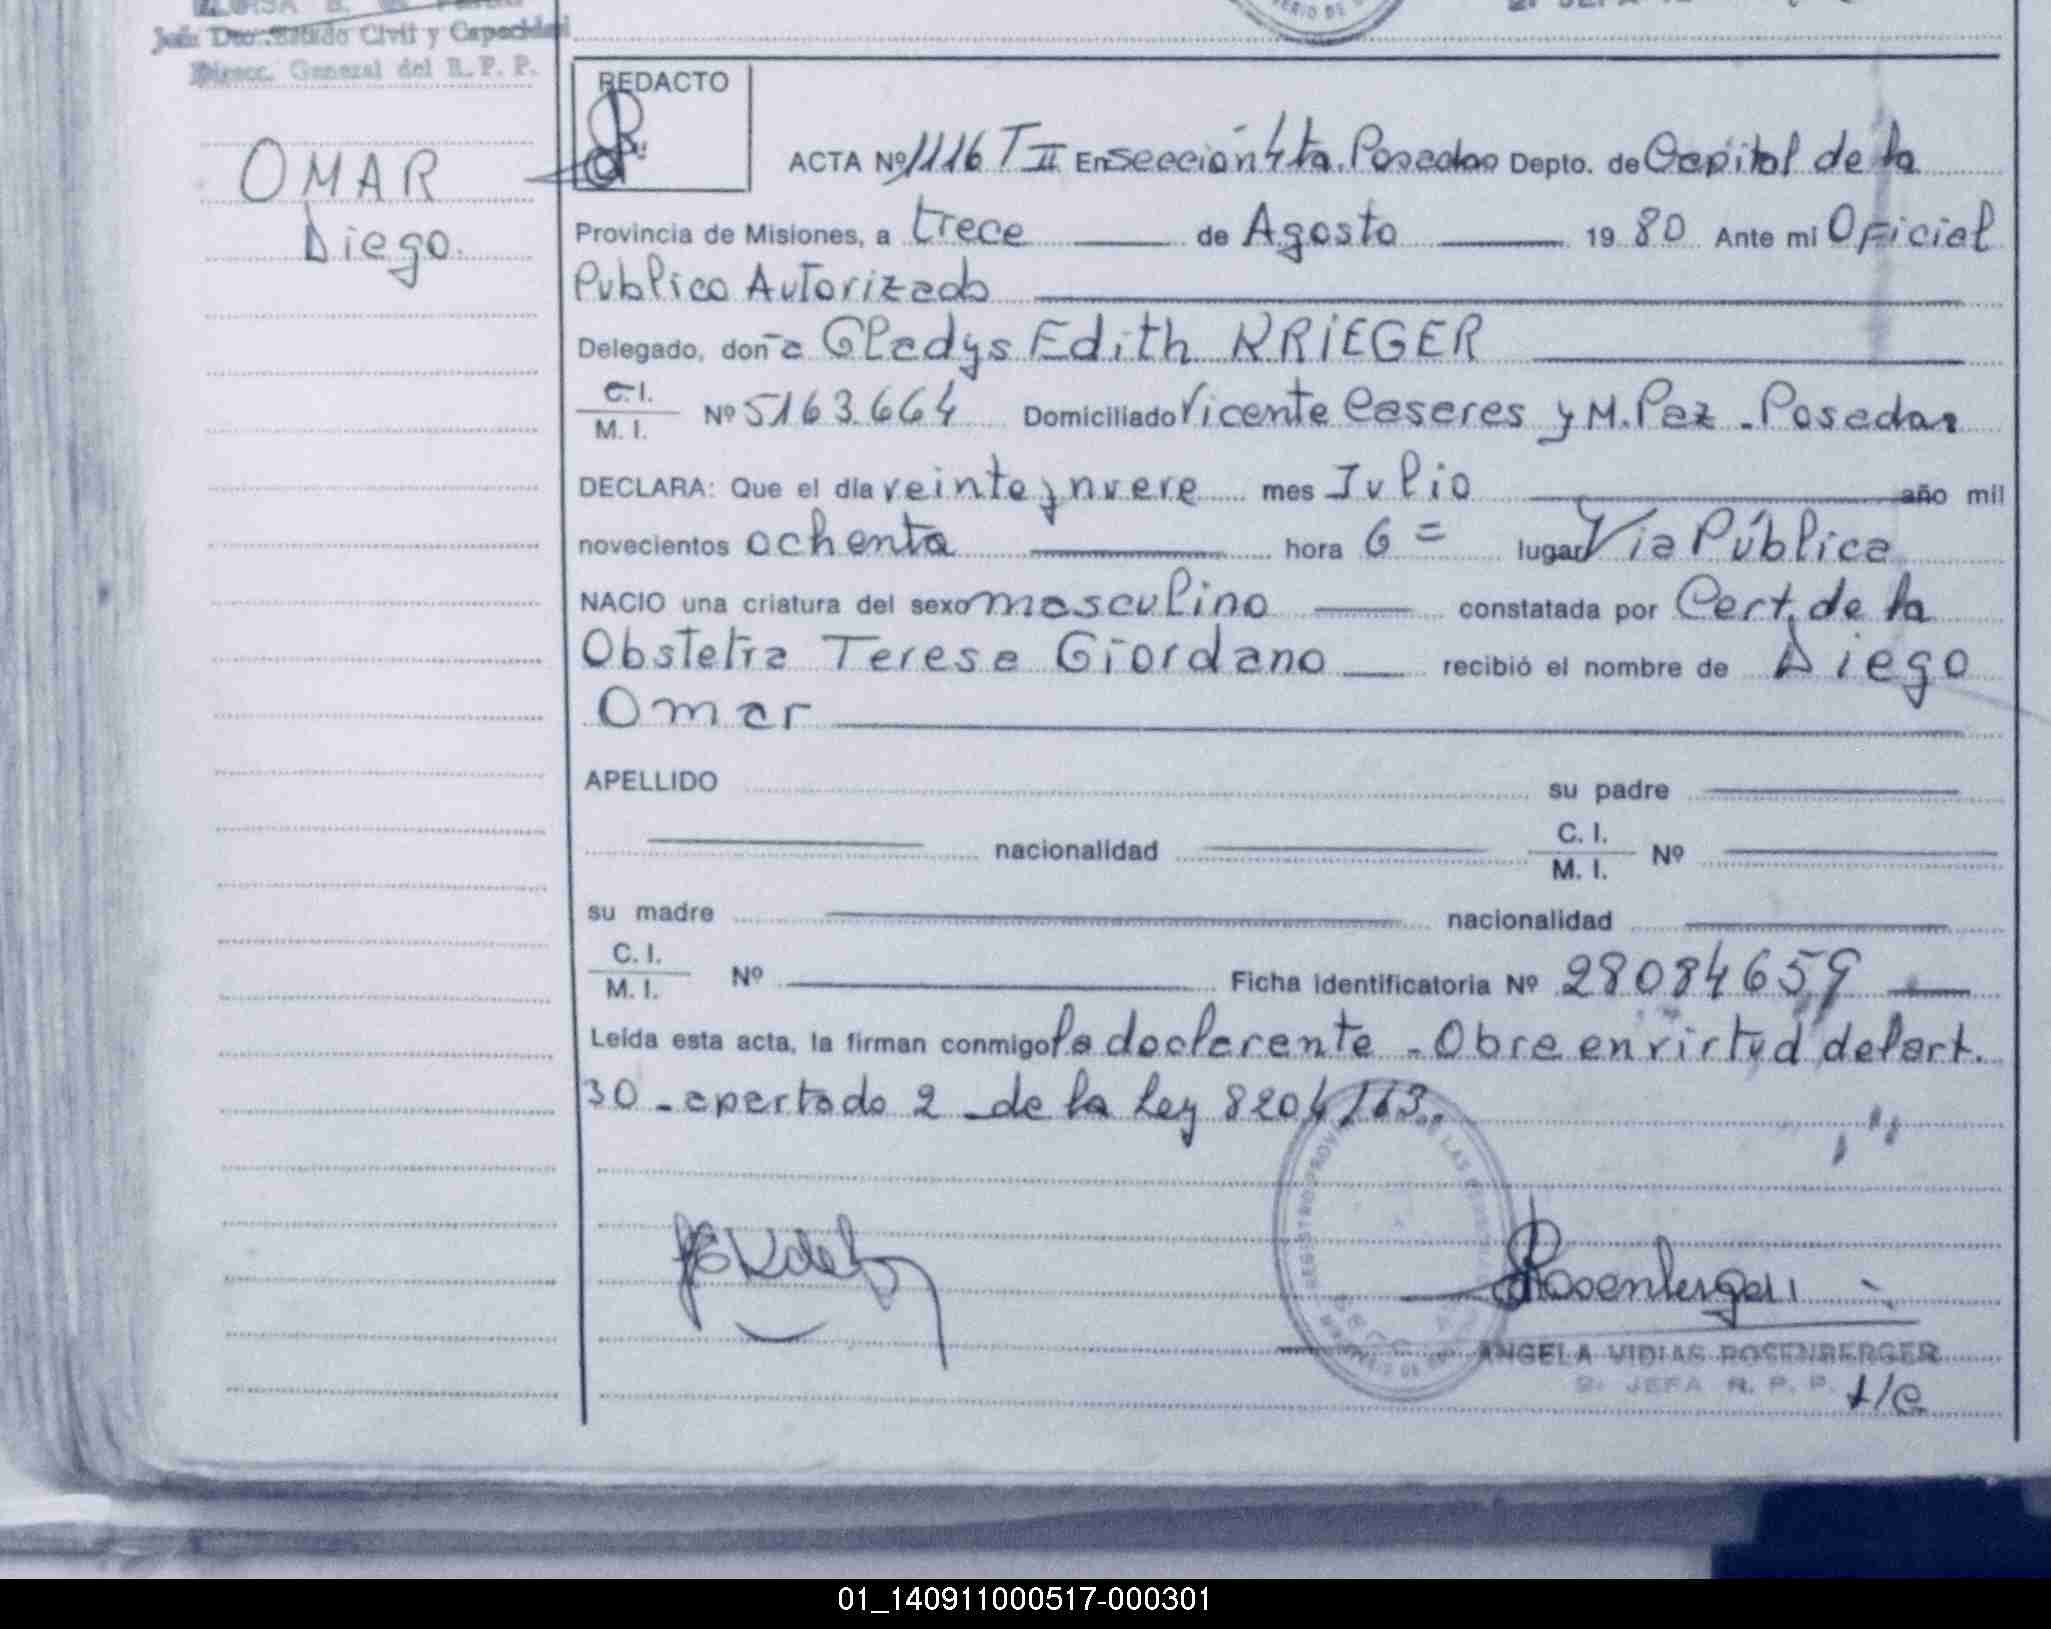 Jefa Dto. Estado Civil y Capacidad
Direcc. General del R. P. P.
OMAR
Diego.
REDACTO
ACTA Nº 1116 T II En sección 4ta. Posadas Depto. de Capital de la
Provincia de Misiones, a trece de Agosto 19 80 Ante mi Oficial
Publico Autorizado
Delegado, don a Gladys Edith KRIEGER
C. I.
M. I. Nº 5163.664 Domiciliado Vicente Caseres y M. Paz - Posadas
DECLARA: Que el día veinte y nueve mes Julio año mil
novecientos ochenta hora 6 = lugar Via Pública
NACIO una criatura del sexo masculino constatada por Cert. de la
Obstetra Teresa Giordano recibió el nombre de Diego
Omar
APELLIDO su padre
nacionalidad C. I.
M. I. Nº
su madre nacionalidad
C. I.
M. I. Nº Ficha Identificatoria Nº 28084659
Leída esta acta, la firman conmigo la declarante - Obra en virtud del art.
30 - apartado 2 - de la Ley 8204/63.
Rosenberger
ANGELA VIDIAS ROSENBERGER
2ª JEFA R. P. P.
01_140911000517-000301